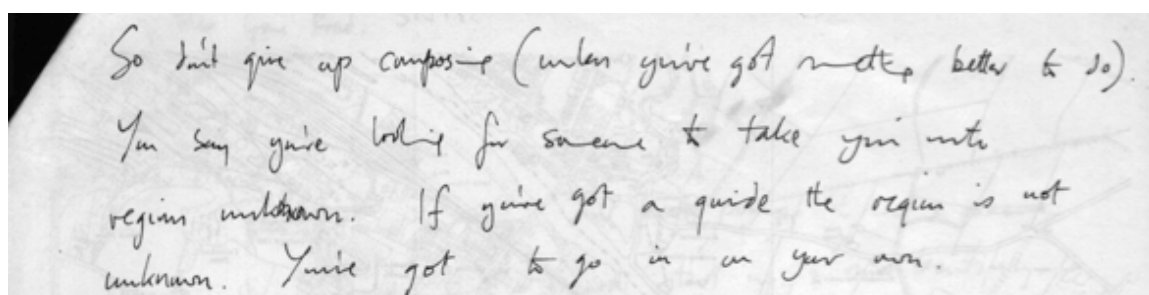 So don't give up composing (unless you've got something better to do).
You say you're looking for someone to take you into
regions unknown. If you've got a guide the region is not
unknown. You've got to go in on your own.